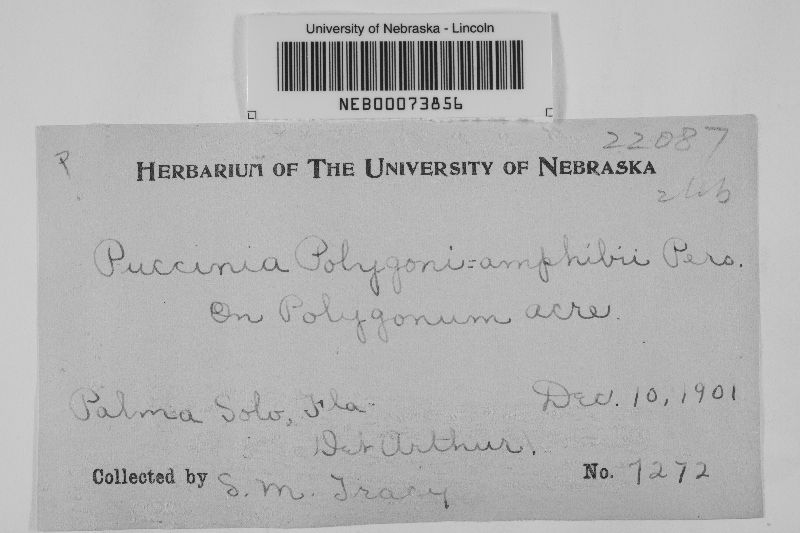 University of Nebraska - Lincoln
NEB00073856
22087
P
HERBARIUM OF THE UNIVERSITY OF NEBRASKA
Puccinia Polygoni=amphibii Pers.
On Polygonum acre.
Palma Solo, Fla. Dec. 10, 1901
Det Arthur.
Collected by S. M. Tracy No. 7272